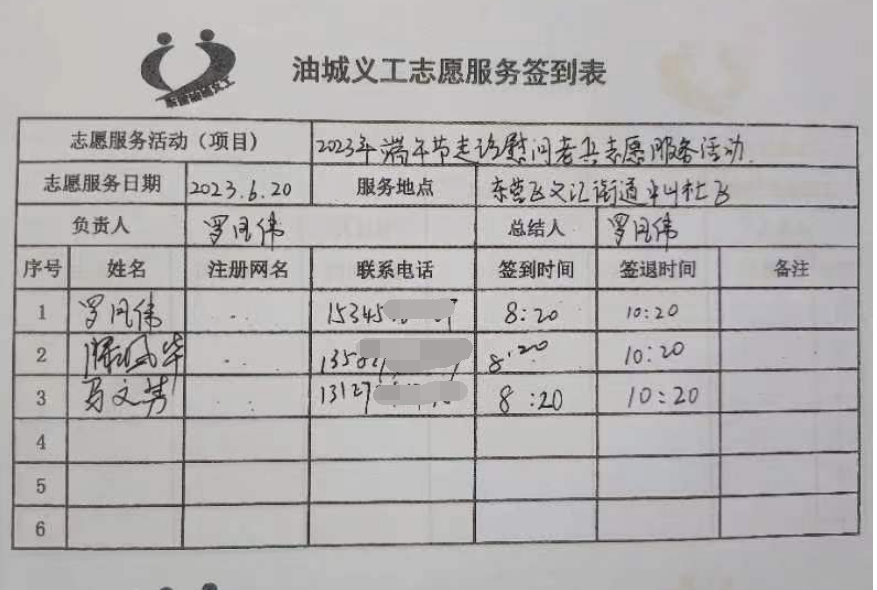 油城义工志愿服务签到表
志愿服务活动（项目） 2023年端午节走访慰问老兵志愿服务活动.
志愿服务日期 2023.6.20 服务地点 东营 文汇街道
负责人 罗同伟 总结人 罗同伟
序号 姓名 注册网名 联系电话 签到时间 签退时间 备注
1 罗同伟 15345 8:20 10:20
2 凤华 8:20 10:20
3 马文芳 13127 8:20 10:20
4
5
6